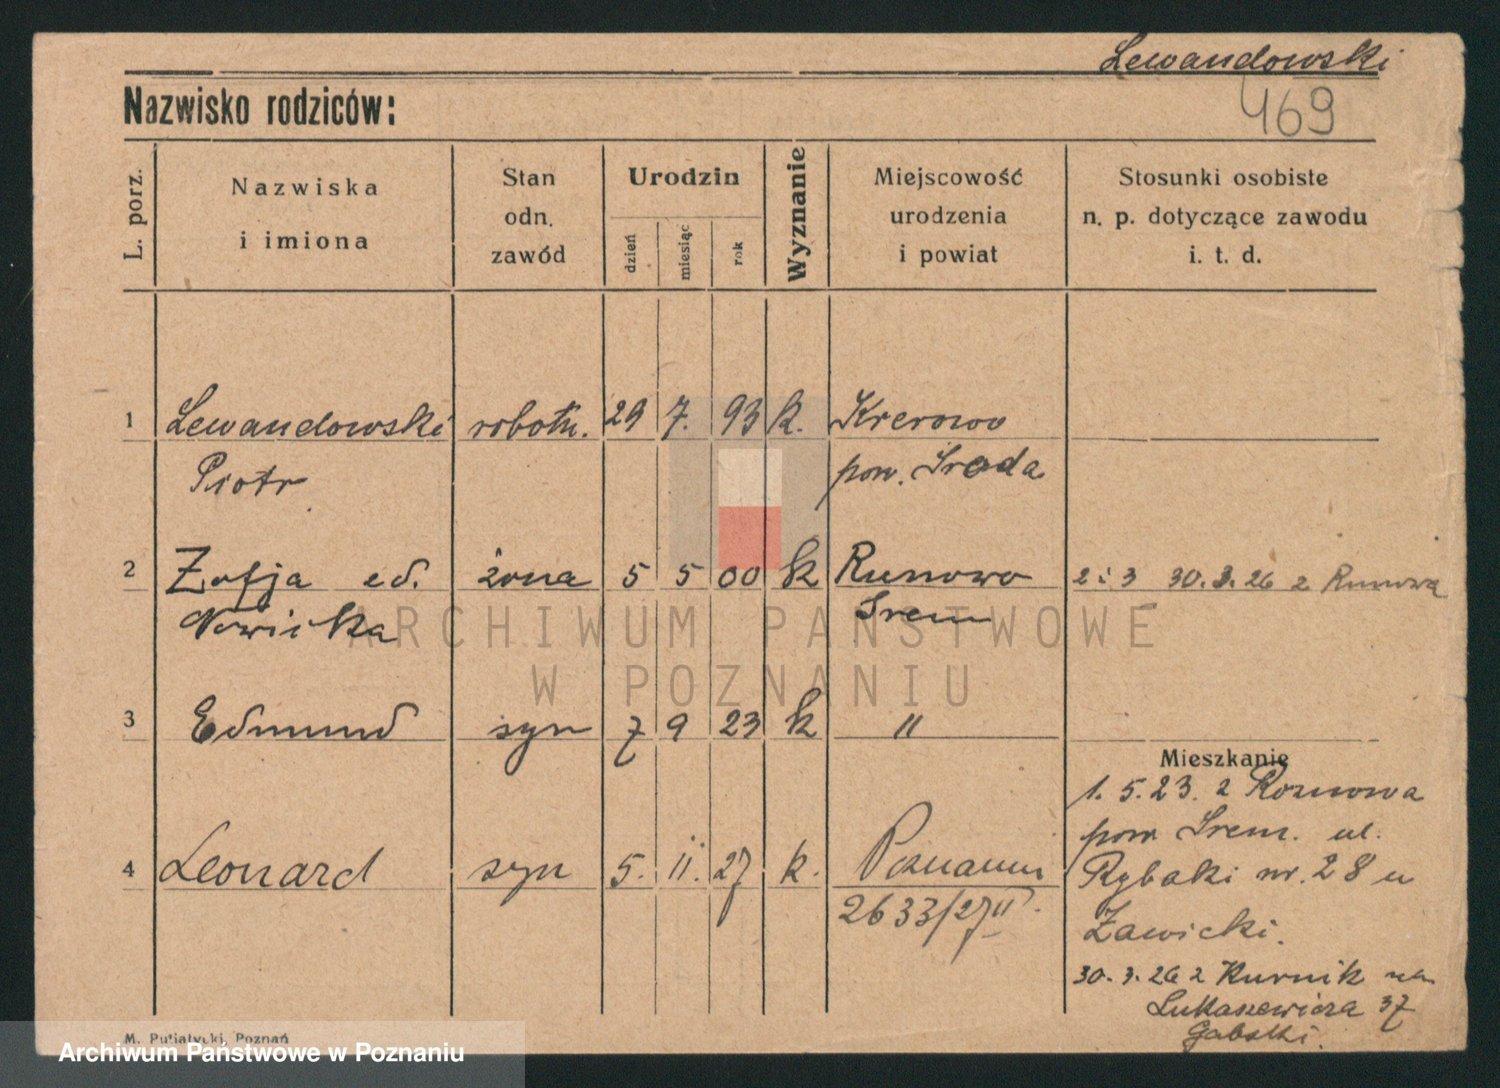 Lewandowski
469
Nazwisko rodziców:
L. porz.
Nazwiska
i imiona
Stan
odn.
zawód
Urodzin
dzień
miesiąc
rok
Wyznanie
Miejscowość
urodzenia
i powiat
Stosunki osobiste
n. p. dotyczące zawodu
i. t. d.
1 Lewandowski robotn. 29 7. 93 k. Krerowo
Piotr pow. Środa
2 Zofja żona 5 5 00 k Runowo 2 i 3 30.3.26 z Runowa
Nowicka Śrem
3 Edmund syn 7 9 23 k "
Mieszkanie
1. 5.23. z
pow Śrem. ul.
4 Leonard syn 5. II. 27 k. Poznaniu
Rybaki nr. 28 u
2633/27 II.
Zawicki.
30.3.26 z Kurnik na
Łukaszewicza 37
M. Putiatycki, Poznań
ARCHIWUM PAŃSTWOWE
W POZNANIU
Archiwum Państwowe w Poznaniu